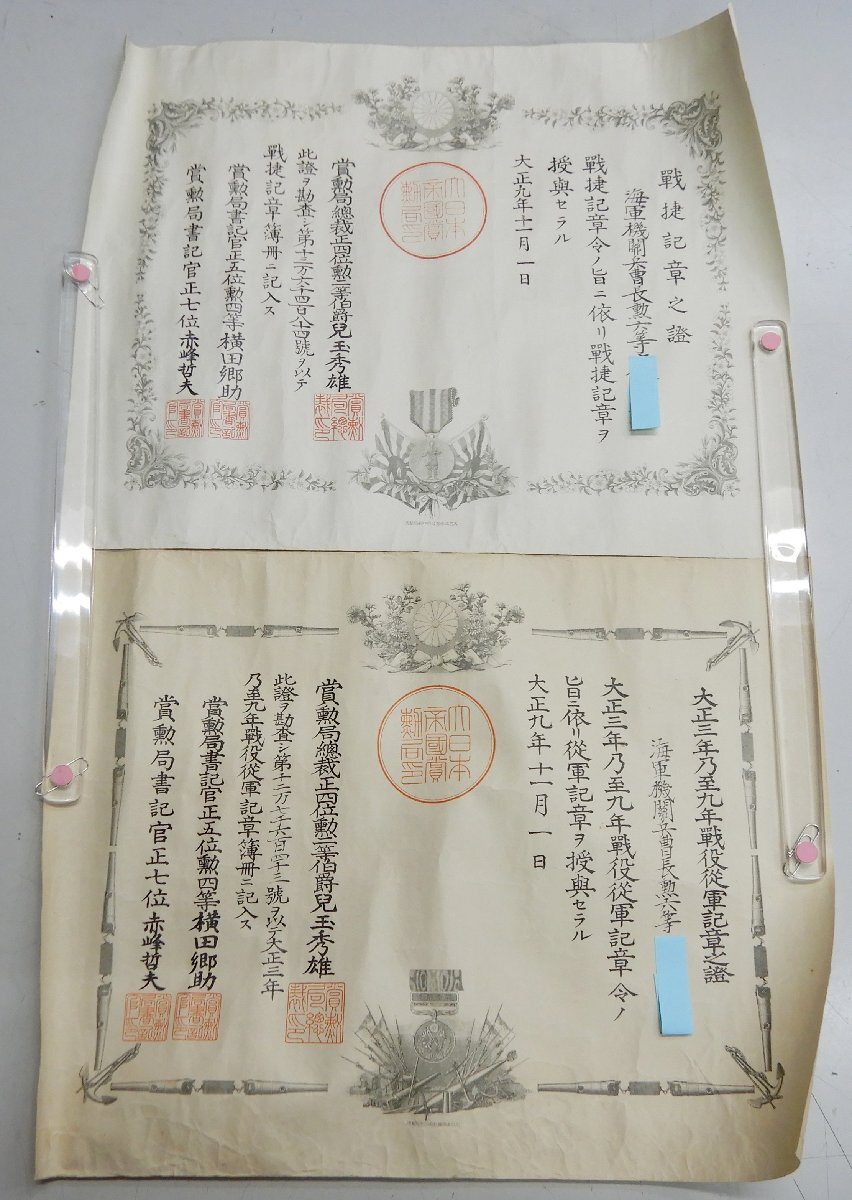 戰捷記章之證
海軍機關兵曹長勲六等
戰捷記章令ノ旨ニ依リ戰捷記章ヲ
授與セラル
大正九年十一月一日
大日本
帝國賞
勲局印
賞勲局總裁正四位勲二等伯爵兒玉秀雄
此證ヲ勘査シ第十二万六千四百八十四號ヲ以テ
戰捷記章簿册ニ記入ス
賞勲局書記官正五位勲四等横田郷助
賞勲局書記官正七位赤峰哲夫
大正三年乃至九年戰役從軍記章之證
海軍機關兵曹長勲六等
大正三年乃至九年戰役從軍記章令ノ
旨ニ依リ從軍記章ヲ授與セラル
大正九年十一月一日
大日本
帝國賞
勲局印
賞勲局總裁正四位勲二等伯爵兒玉秀雄
此證ヲ勘査シ第十二万七千六百四十三號ヲ以テ大正三年
乃至九年戰役從軍記章簿册ニ記入ス
賞勲局書記官正五位勲四等横田郷助
賞勲局書記官正七位赤峰哲夫